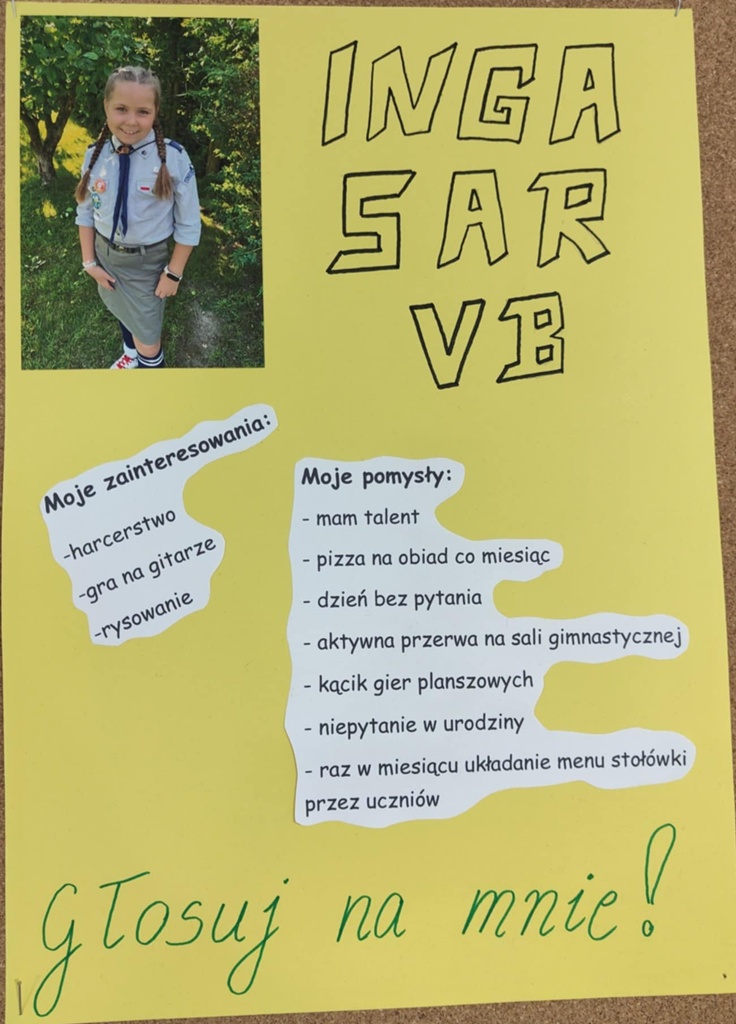 INGA
SAR
VB
Moje zainteresowania:
-harcerstwo
-gra na gitarze
-rysowanie
Moje pomysły:
- mam talent
- pizza na obiad co miesiąc
- dzień bez pytania
- aktywna przerwa na sali gimnastycznej
- kącik gier planszowych
- niepytanie w urodziny
- raz w miesiącu układanie menu stołówki
przez uczniów
Głosuj na mnie!